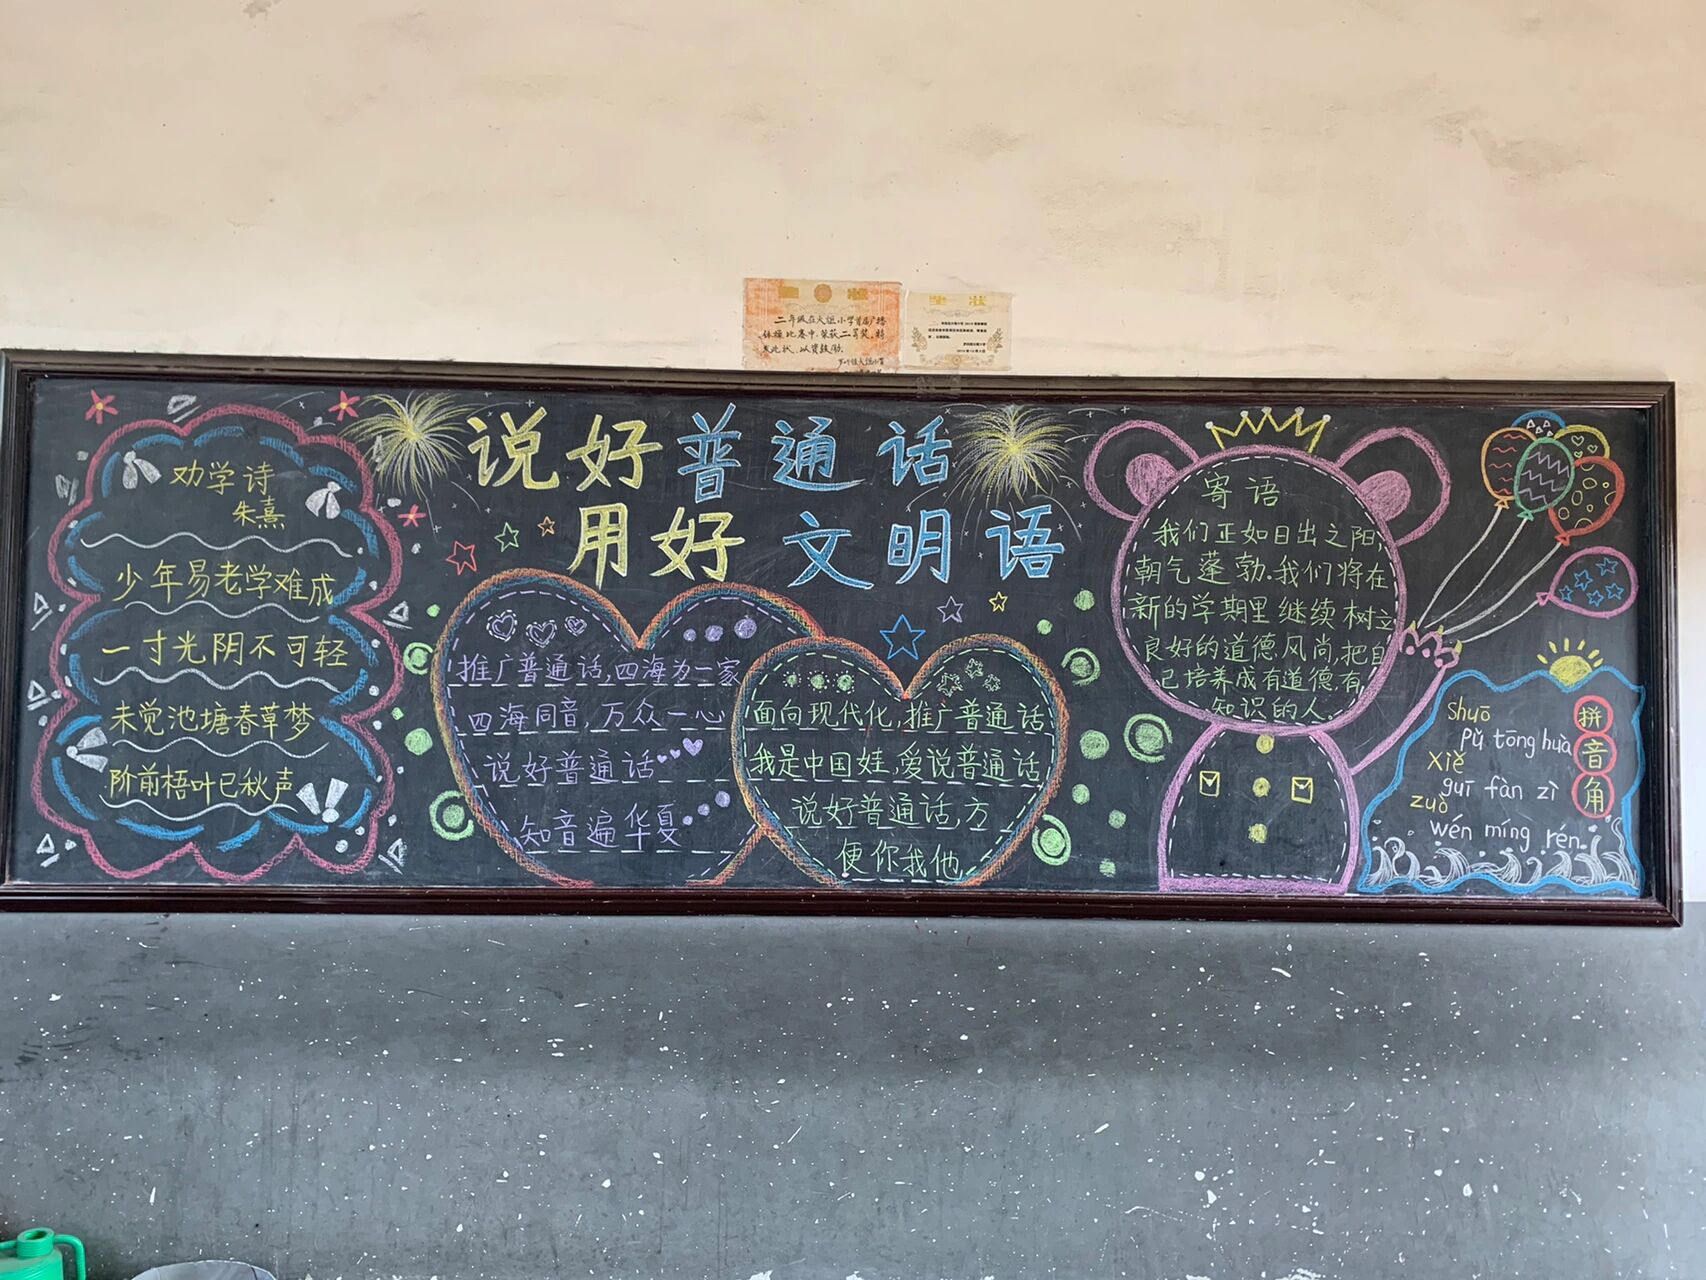 奖状
二年级在大组小学首届广播
体操比赛中,荣获二等奖,特
发此状,以资鼓励。
奖状
说好普通话
用好文明语
劝学诗
朱熹
少年易老学难成
一寸光阴不可轻
未觉池塘春草梦
阶前梧叶已秋声
推广普通话,四海为一家
四海同音,万众一心
说好普通话
知音遍华夏
面向现代化,推广普通话
我是中国娃,爱说普通话
说好普通话,方
便你我他
寄语
我们正如日出之阳,
朝气蓬勃.我们将在
新的学期里继续树立
良好的道德风尚,把自
己培养成有道德,有
知识的人.
拼音角
shuō
pǔ tōng huà
xiě
guī fàn zì
zuò
wén míng rén